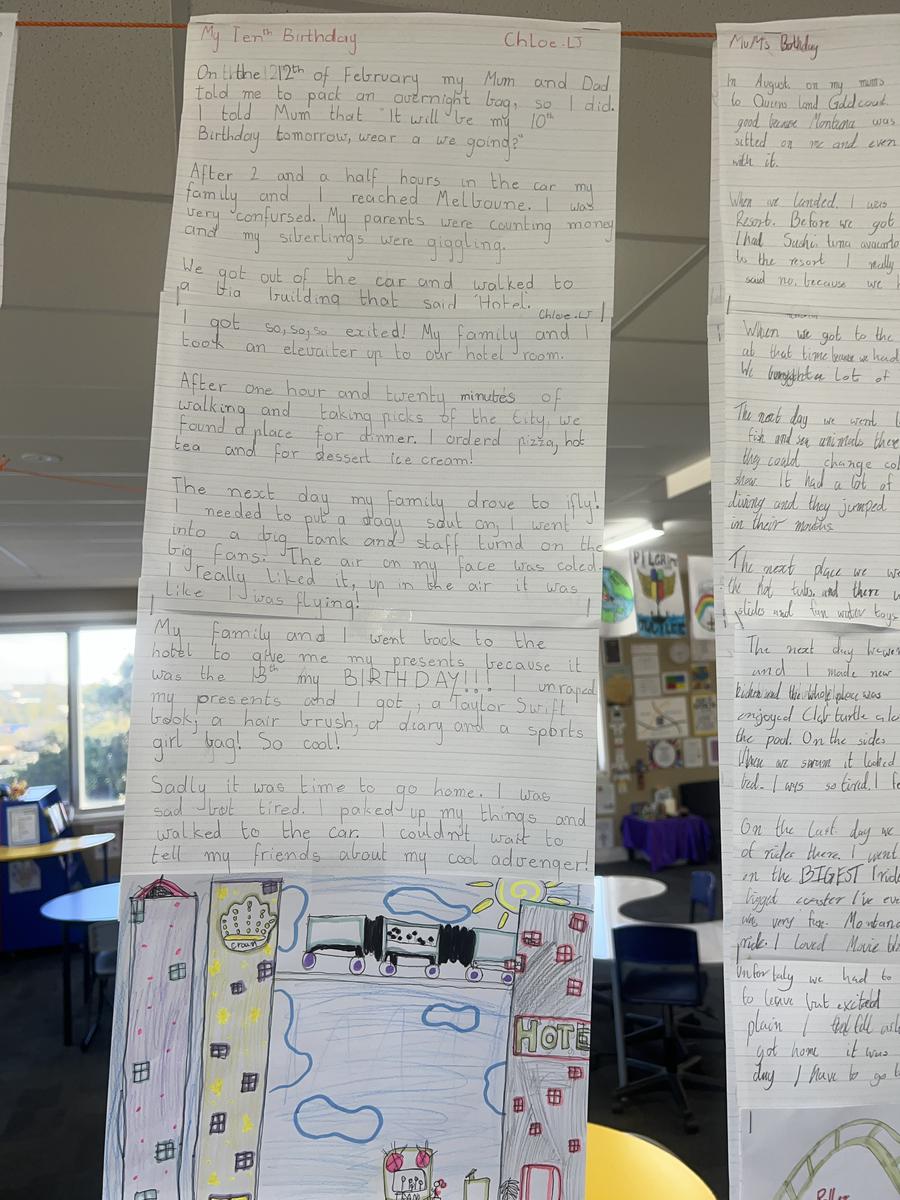 My Tenth Birthday
Chloe.LJ
On the 12th of February my Mum and Dad
told me to pack an overnight bag, so I did.
I told Mum that "It will be my 10th
Birthday tomorrow, wear a we going?"
After 2 and a half hours in the car my
family and I reached Melboune. I was
very confursed. My parents were counting money
and my siberlings were giggling.
We got out of the car and walked to
a big building that said 'Hotel'.
Chloe.LJ
I got so,so,so exited! My family and I
took an elevaiter up to our hotel room.
After one hour and twenty minutes of
walking and taking picks of the City, we
found a place for dinner. I orderd pizza, hot
tea and for dessert ice cream!
The next day my family drove to ifly!
I needed to put a dagy saut on, I went
into a big tank and staff turnd on the
big fans. The air on my face was coled.
I really liked it, up in the air it was
like I was flying!
My family and I went back to the
hotel to give me my presents because it
was the 13th my BIRTHDAY!!! I unraped
my presents and I got, a Taylor Swift
book, a hair brush, a diary and a sports
girl bag! So cool!
Sadly it was time to go home. I was
sad but tired. I paked up my things and
walked to the car. I couldn't wait to
tell my friends about my cool advenger!
crown
HOTE
MuM's Birthday
In August on my mums
to Queens land Gold coast.
good because Montana was
sitted on me and even
with it.
When we landed. I was
Resort. Before we got
I had Sushi tuna avacardo
to the resort I really
said no, because we h
When we got to the
at that time because we had
We a Lot of
The next day we went
fish and sea animals there
they could change col
show. It had a lot of
diving and they jumped
in their mouths
The next place we we
the hot tubs. and there w
slides and fun water toys
The next day
and I made new
the whole place was
enjoyed Club turtle alo
the pool. On the sides
When we swum it looked
bed. I was so tired. I fe
On the Last day we
of rides there. I went
in the BIGEST (ride
biggest coaster I've eve
was very fun. Montana
ride. I loved Movie Wo
Unfortaly we had to
to leave but excited
plain I fell asle
got home it was
day I have to go t
PILGRIM
JUBILEE